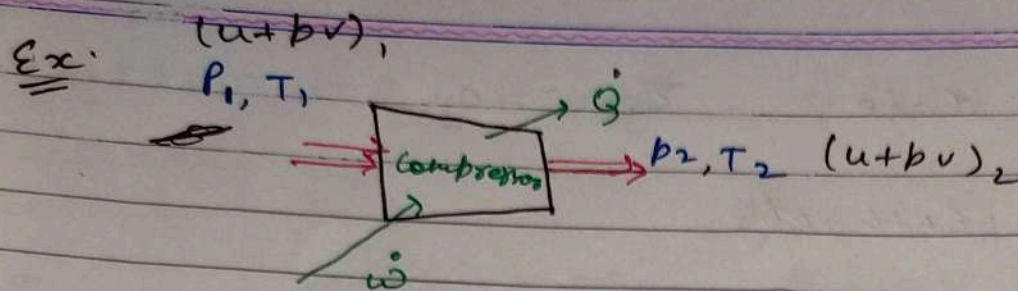 Ex. (u+pv)₁
P₁, T₁
Q̇
compressor
p₂, T₂ (u+pv)₂
ẇ